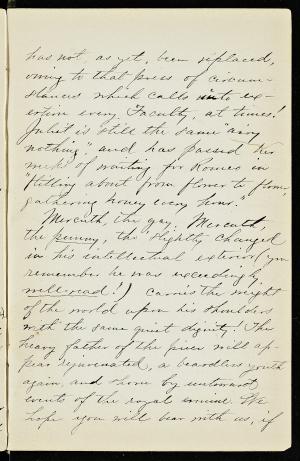 has not, as yet, been replaced,
owing to that press of circum-
stances which calls into ex-
ertion every Faculty, at times!
Juliet is still the same "airy
nothing" and has passed her
week of waiting for Romeo in
"flitting about from flower to flower,
gathering honey every hour."
Mercuth, the gay, Mercuth,
the funny, tho' slightly changed
in his intellectual exterior (you
remember he was exceedingly
well-read!) carries the weight
of the world upon his shoulders
with the same quiet dignity! The
heavy father of the piece will ap-
pear rejuvenated, a beardless youth
again, and shorn by untoward
events of the royal ermine. We
hope you will bear with us, if